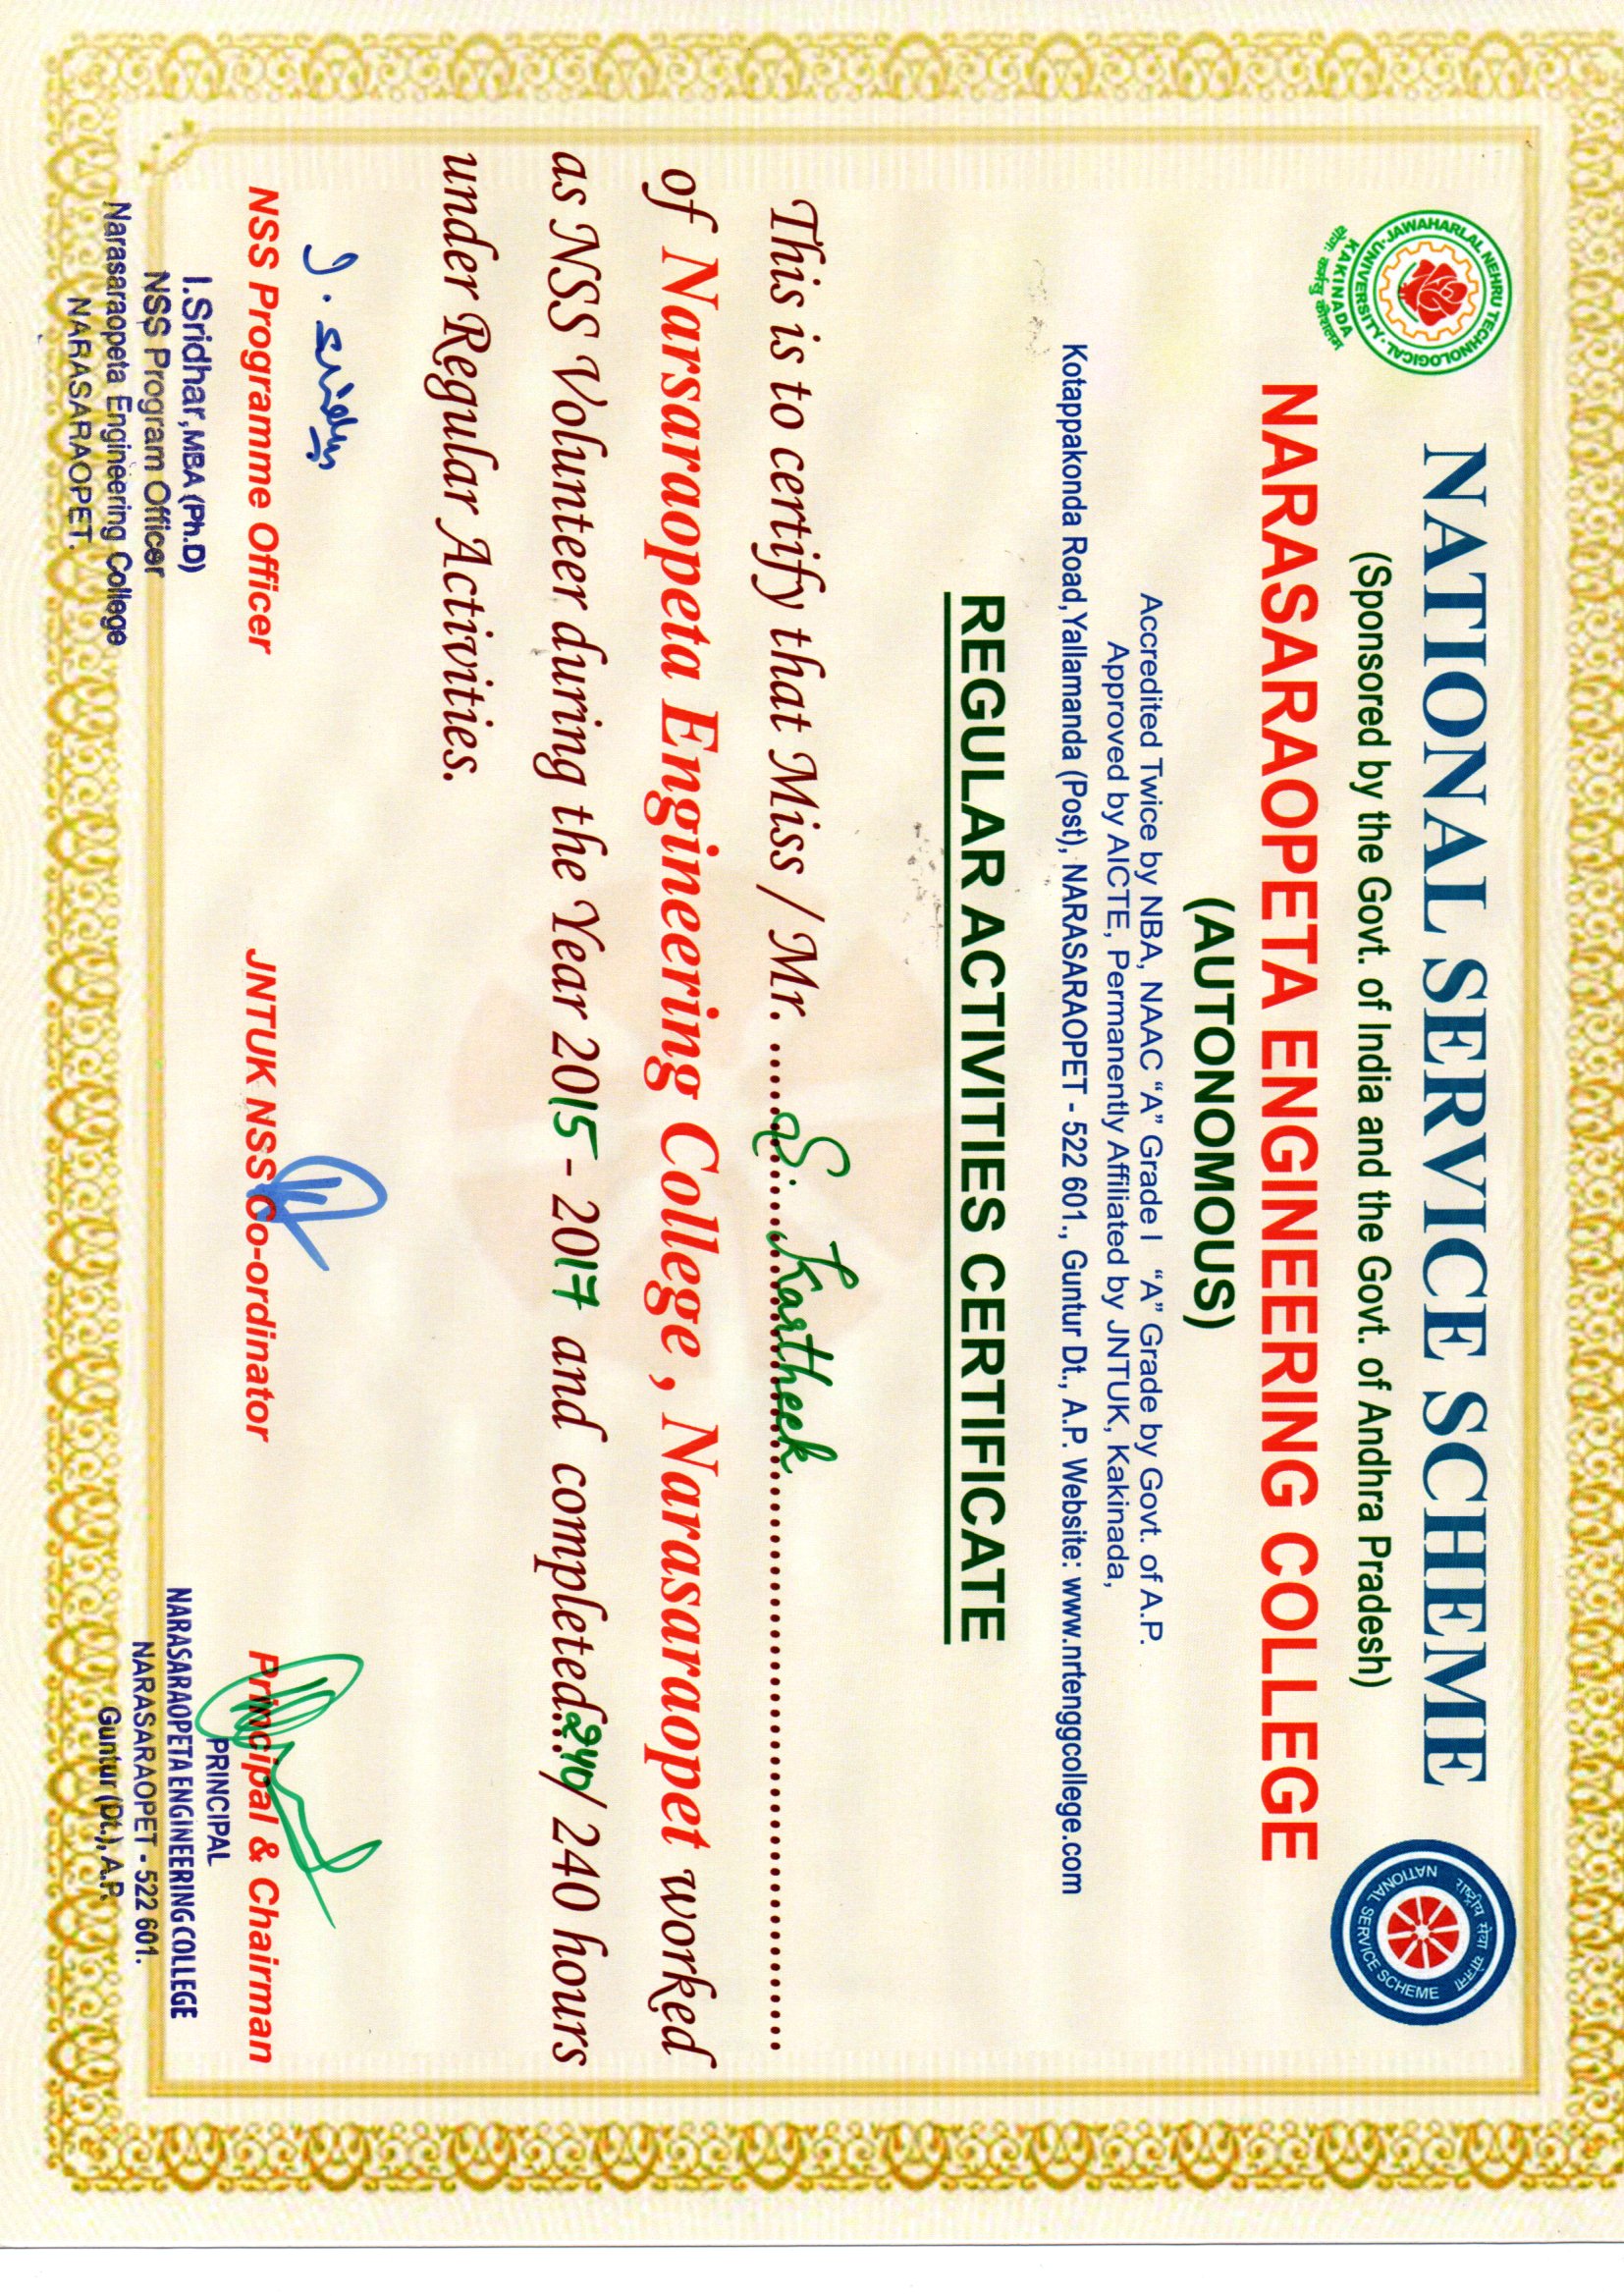 JAWAHARLAL NEHRU TECHNOLOGICAL UNIVERSITY
KAKINADA
योगः कर्मसु कौशलम्
NATIONAL SERVICE SCHEME
राष्ट्रीय सेवा योजना
NATIONAL SERVICE SCHEME
(Sponsored by the Govt. of India and the Govt. of Andhra Pradesh)
NARASARAOPETA ENGINEERING COLLEGE
(AUTONOMOUS)
Accredited Twice by NBA, NAAC “A” Grade I “A” Grade by Govt. of A.P.
Approved by AICTE, Permanently Affiliated by JNTUK, Kakinada,
Kotappakonda Road,Yallamanda (Post), NARASARAOPET - 522 601., Guntur Dt., A.P. Website: www.nrtenggcollege.com
REGULAR ACTIVITIES CERTIFICATE
This is to certify that Miss / Mr. ..... S. Kartheek ..........
of Narsaraopeta Engineering College , Narasaraopet worked
as NSS Volunteer during the Year 2015 - 2017 and completed...240/ 240 hours
under Regular Activities.
I. Sridhar
NSS Programme Officer
JNTUK NSS Co-ordinator
Principal & Chairman
I.Sridhar,MBA (Ph.D)
NSS Program Officer
Narasaraopeta Engineering College
NARASARAOPET.
PRINCIPAL
NARASARAOPETA ENGINEERING COLLEGE
NARASARAOPET - 522 601.
Guntur (Dt.), A.P.